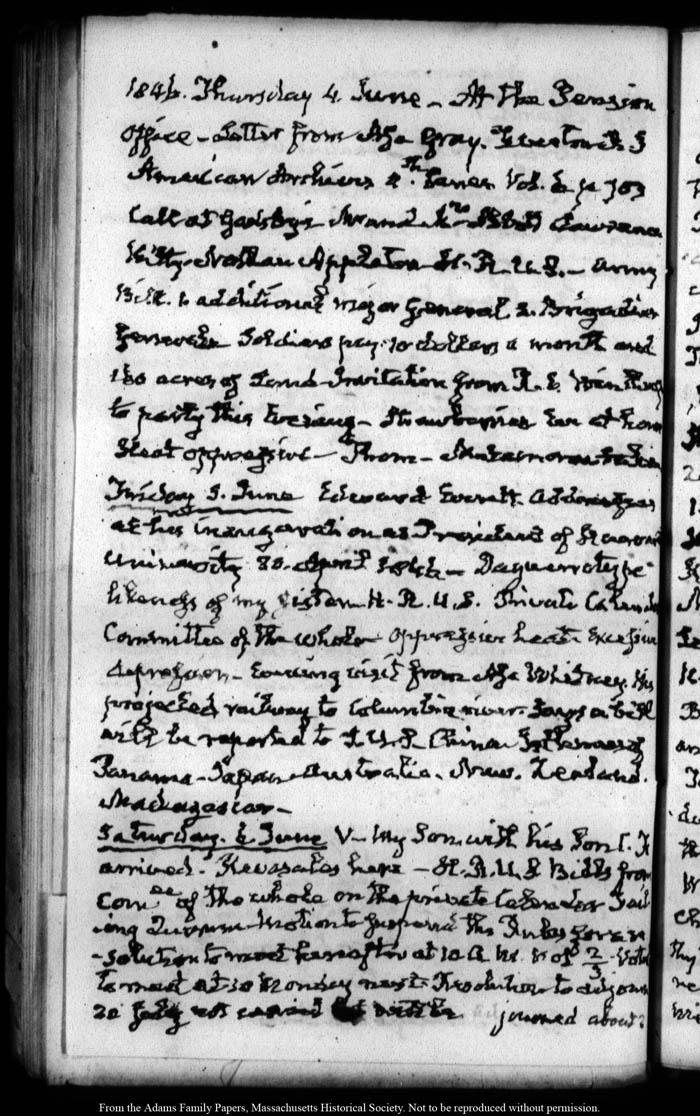 1846. Thursday 4. June - At the Pension
office - Letter from Asa Gray.
American Archives 4th. Series Vol. 6 p 703
Call at Gadsby's Mr and Mrs Abbott Lawrance
Kitty. Nathan Appleton H. R. U. S. - Army
Bill. 1. additional major General, 2. Brigadier
Generals Soldiers pay. 10 dollars a month and
160 acres of Land - Invitation from R. C. Winthrop
to party this Evening - Strawberries Ice at home
Heat oppressive - Thom -
Friday 5. June Edward Everett Addresses
at his inauguration as President of Harvard
University 30. April 1846 - Daguerrotype
likeness of my sister - H. R. U. S. Private Calendar
Committee of the whole - oppressive heat. Excessive
depression - Evening visit from Asa Whitney. His
projected railway to Columbia river. Says a bill
will be reported to S. U. S. China Isthmus of
Panama - Japan - Australia. New. Zealand.
Madagascar -
Saturday. 6. June V - My Son with his Son J. Q.
arrived. here - H. R. U. S Bills from
Comee. of the whole on the private Calendar Fail
ing Quorum - Motion to suspend the Rules for a re
-solution to meet hereafter at 10 A. M. not 2/3 - Vote
to meet at 10 Monday next. Resolution to adjourn
20 July not journed about
From the Adams Family Papers, Massachusetts Historical Society. Not to be reproduced without permission.